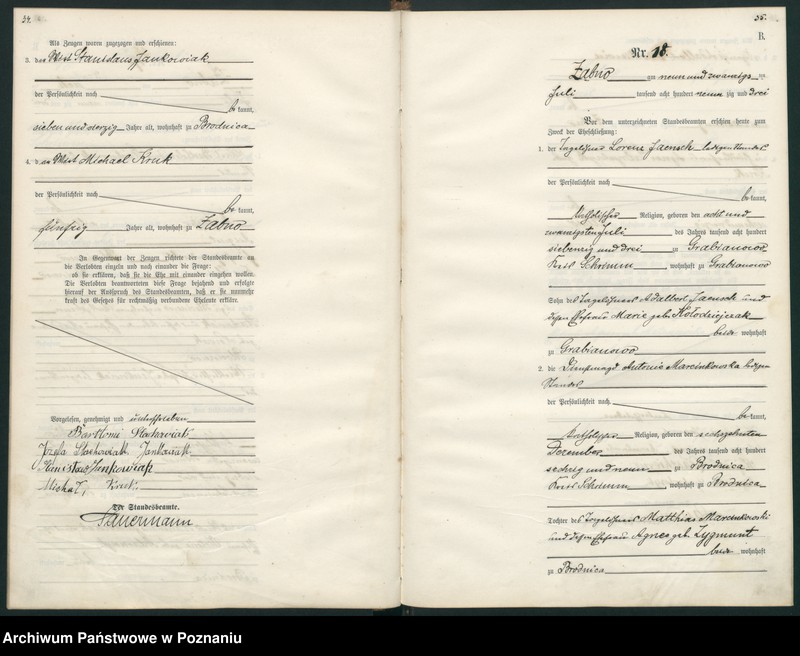 34.
Als Zeugen waren zugezogen und erschienen:
3. der Wirt Stanislaus Jankowiak
der Persönlichkeit nach
bekannt,
sieben und vierzig Jahre alt, wohnhaft zu Brodnica
4. der Wirt Michael Kruk
der Persönlichkeit nach
bekannt,
fünfzig Jahre alt, wohnhaft zu Żabno
In Gegenwart der Zeugen richtete der Standesbeamte an
die Verlobten einzeln und nach einander die Frage:
ob sie erklären, daß sie die Ehe mit einander eingehen wollen.
Die Verlobten beantworteten diese Frage bejahend und erfolgte
hierauf der Ausspruch des Standesbeamten, daß er sie nunmehr
kraft des Gesetzes für rechtmäßig verbundene Eheleute erkläre.
Vorgelesen, genehmigt und unterschrieben
Stachowiak
Józefa Stachowiak Jankowiak
Stanislaus Jankowiak
Michał Kruk
Der Standesbeamte.
Sauermann
35.
B.
Nr. 18.
Żabno am neun und zwanzigsten
Juli tausend acht hundert neun zig und drei
Vor dem unterzeichneten Standesbeamten erschien heute zum
Zweck der Eheschließung:
1. der Tagelöhner Lorenz Jaensch ledigen Standes
der Persönlichkeit nach
bekannt,
katholischer Religion, geboren den acht und
zwanzigsten Juli des Jahres tausend acht hundert
siebenzig und drei zu Grabianowo
Kreis Schrimm, wohnhaft zu Grabianowo
Sohn des Tagelöhners Adalbert Jaensch und
dessen Ehefrau Marie geb. Kołodziejczak
beide wohnhaft
zu Grabianowo
2. die Dienstmagd Antonie Marcinkowska ledigen
Standes
der Persönlichkeit nach
bekannt,
katholischer Religion, geboren den sechszehnten
Dezember des Jahres tausend acht hundert
sechzig und neun zu Brodnica
Kreis Schrimm, wohnhaft zu Brodnica
Tochter des Tagelöhners Matthias Marcinkowski
und dessen Ehefrau Agnes geb. Zygmunt
beide wohnhaft
zu Brodnica
Archiwum Państwowe w Poznaniu